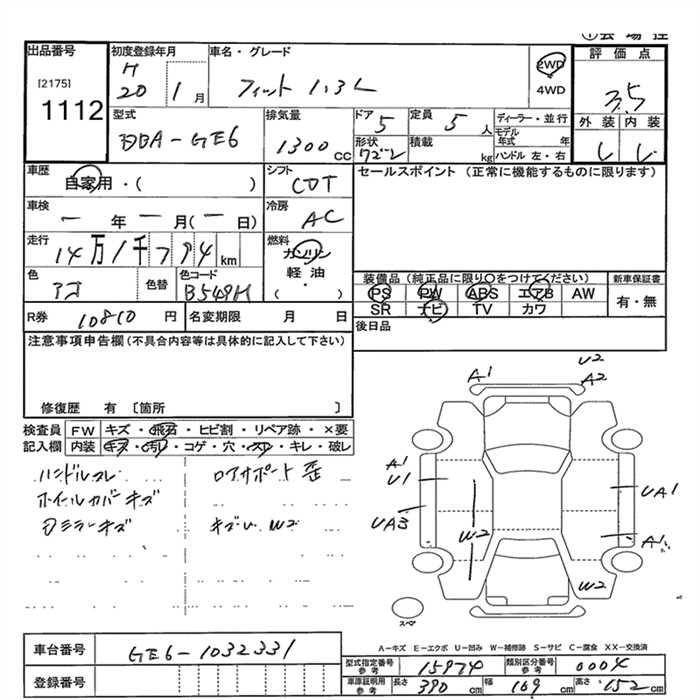 出品番号
[2175]
1112
初度登録年月
H 20 1 月
車名・グレード
フィット 1.3L
2WD
4WD
評価点
3.5
外装 内装
型式
DBA-GE6
排気量
1300 cc
ドア 5
形状 ワゴン
定員 5 人
積載 kg
ディーラー・並行
モデル年式 年
ハンドル 左・右
車歴
自家用・( )
シフト
CVT
セールスポイント (正常に機能するものに限ります)
車検
ー 年 ー 月(ー 日)
冷房
AC
走行
14万1千794 km
燃料
ガソリン
軽油・( )
色
アオ
色替
色コード
B549H
装備品(純正品に限り〇をつけてください)
PS PW ABS エアB AW
SR ナビ TV カワ
新車保証書
有・無
R券 10810 円
名変期限 月 日
後日品
注意事項申告欄(不具合内容等は具体的に記入して下さい)
修復歴 有〔箇所 〕
検査員記入欄
FW キズ・飛石・ヒビ割・リペア跡・×要
内装 キズ・汚レ・コゲ・穴・スレ・キレ・破レ
ハンドルスレ
ロアサポート歪
ホイルカバーキズ
ミラーキズ
W2
A1
U2
A2
A1
U1
UA1
UA3
W2
A1
W2
スペア
A-キズ E-エクボ U-凹み W-補修跡 S-サビ C-腐食 XX-交換済
車台番号 GE6-1032331
登録番号
型式指定番号 参考 15974
類別区分番号 参考 0004
車庫証明用 参考 長さ 390 cm 幅 169 cm 高さ 152 cm